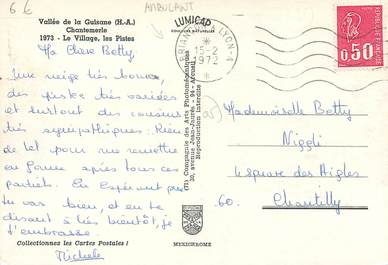 6 €
AMBULANT
Vallée de la Guisane (H.-A.)
Chantemerle
1973 - Le Village, les Pistes
LUMICAP
COULEURS NATURELLES
Ma Chère Betty,
Une neige très bonne
des pistes très variées
et surtout des cousins
très sympathiques : Rien
de tel pour nous remettre
en forme après tous ces
partiels. En espérant que
tu vas bien, et en te
disant à très bientôt, je
t'embrasse.
Michèle
Collectionnez les Cartes Postales !
(71) Compagnie des Arts Photomécaniques
30, avenue Jean-Jaurès - 94 - Arcueil
Reproduction interdite
MEXICHROME
15-2
1972
0,50
Mademoiselle Betty
Niggli
4 square des Aigles
Chantilly
60.